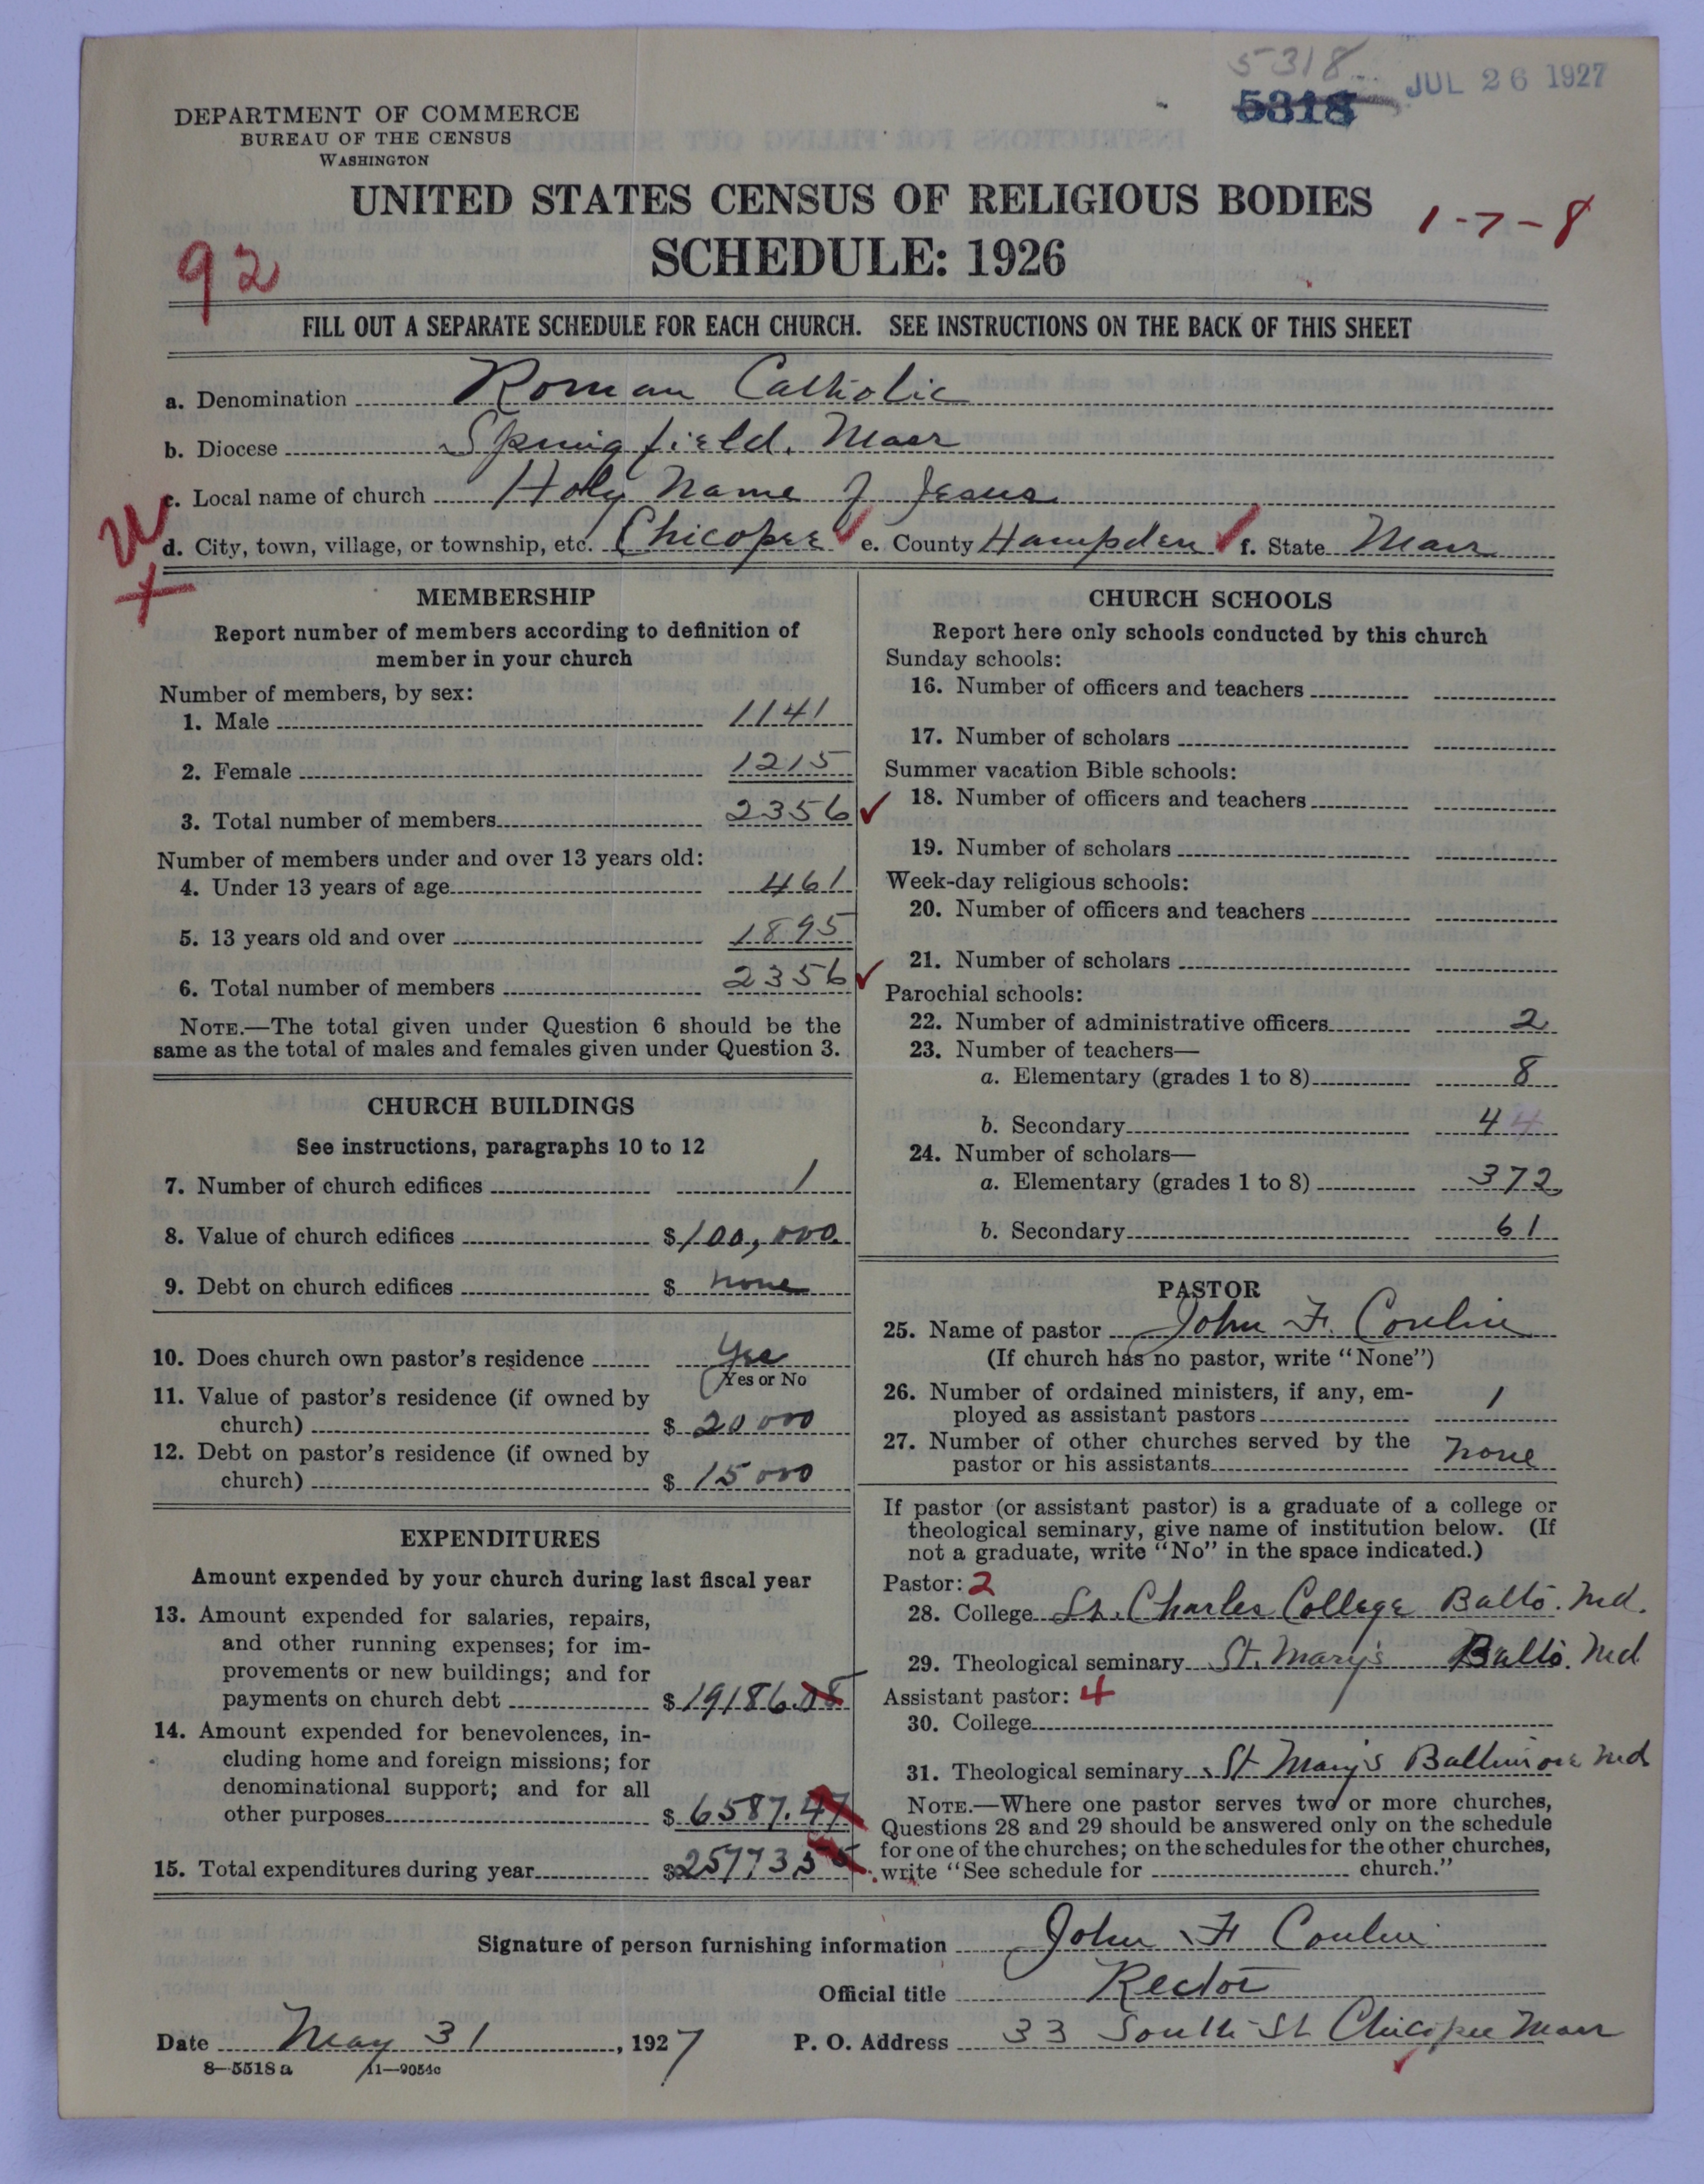 5318
5318 JUL 26 1927
DEPARTMENT OF COMMERCE
BUREAU OF THE CENSUS
WASHINGTON
UNITED STATES CENSUS OF RELIGIOUS BODIES
1-7-8
SCHEDULE: 1926
92
FILL OUT A SEPARATE SCHEDULE FOR EACH CHURCH. SEE INSTRUCTIONS ON THE BACK OF THIS SHEET
a. Denomination Roman Catholic
b. Diocese Springfield, Mass
c. Local name of church Holy Name of Jesus
d. City, town, village, or township, etc. Chicopee e. County Hampden f. State Mass
MEMBERSHIP
Report number of members according to definition of
member in your church
Number of members, by sex:
1. Male 1141
2. Female 1215
3. Total number of members 2356 ✓
Number of members under and over 13 years old:
4. Under 13 years of age 461
5. 13 years old and over 1895
6. Total number of members 2356 ✓
NOTE.—The total given under Question 6 should be the
same as the total of males and females given under Question 3.
CHURCH BUILDINGS
See instructions, paragraphs 10 to 12
7. Number of church edifices 1
8. Value of church edifices $100,000
9. Debt on church edifices $ none
10. Does church own pastor's residence Yes
Yes or No
11. Value of pastor's residence (if owned by
church) $ 20 000
12. Debt on pastor's residence (if owned by
church) $ 15 000
EXPENDITURES
Amount expended by your church during last fiscal year
13. Amount expended for salaries, repairs,
and other running expenses; for im-
provements or new buildings; and for
payments on church debt $19186.08
14. Amount expended for benevolences, in-
cluding home and foreign missions; for
denominational support; and for all
other purposes $ 6587.47
15. Total expenditures during year $25773 55
CHURCH SCHOOLS
Report here only schools conducted by this church
Sunday schools:
16. Number of officers and teachers
17. Number of scholars
Summer vacation Bible schools:
18. Number of officers and teachers
19. Number of scholars
Week-day religious schools:
20. Number of officers and teachers
21. Number of scholars
Parochial schools:
22. Number of administrative officers 2
23. Number of teachers—
a. Elementary (grades 1 to 8) 8
b. Secondary 4 4
24. Number of scholars—
a. Elementary (grades 1 to 8) 372
b. Secondary 61
PASTOR
25. Name of pastor John F. Conlin
(If church has no pastor, write "None")
26. Number of ordained ministers, if any, em-
ployed as assistant pastors 1
27. Number of other churches served by the
pastor or his assistants none
If pastor (or assistant pastor) is a graduate of a college or
theological seminary, give name of institution below. (If
not a graduate, write "No" in the space indicated.)
Pastor: 2
28. College St. Charles College Balto. Md.
29. Theological seminary St. Mary's Balto. Md
Assistant pastor: 4
30. College
31. Theological seminary St Mary's Baltimore Md
NOTE.—Where one pastor serves two or more churches,
Questions 28 and 29 should be answered only on the schedule
for one of the churches; on the schedules for the other churches,
write "See schedule for church."
Signature of person furnishing information John F Conlin
Official title Rector
Date May 31, 1927 P. O. Address 33 South St Chicopee Mass
8—5518 a 11—9054c